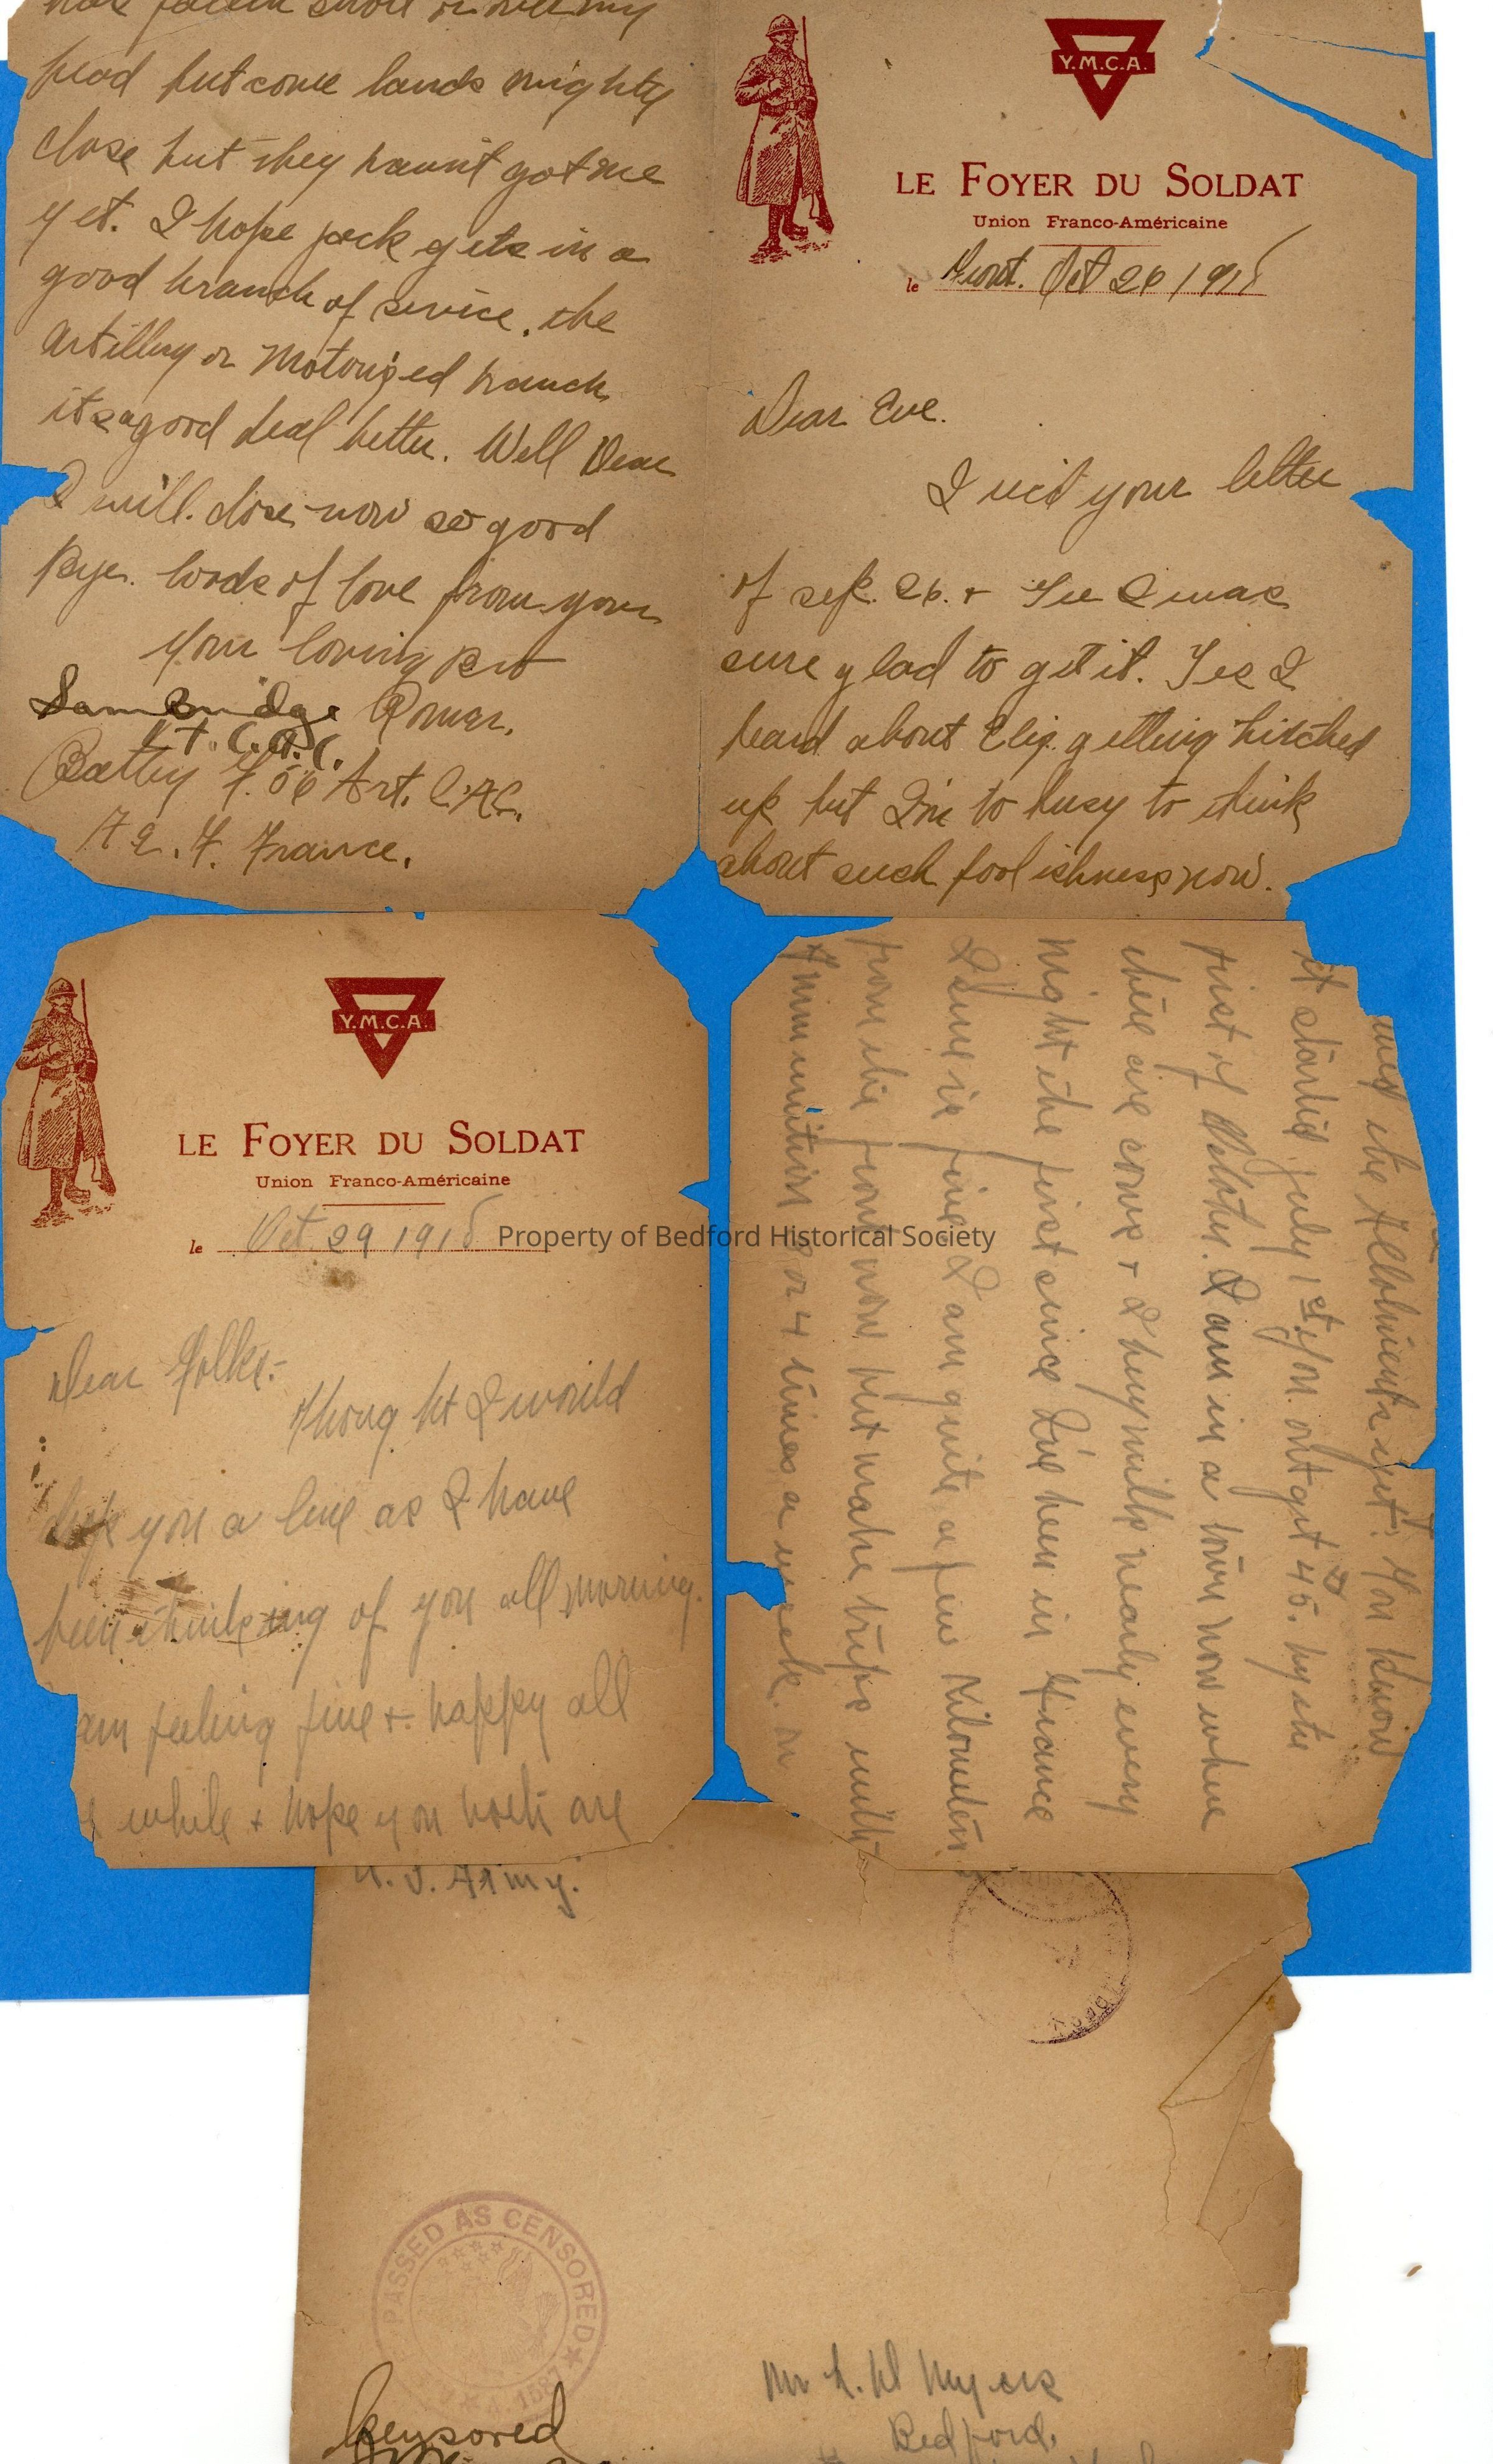 head but some lands mighty
close but they haunt got me
yet. I hope jack gets in a
good branch of service. the
Artillery or Motorized branch
its a good deal better. Well Dear
I will. close now so good
Bye. loads of love from your
Your loving Bro
Sam Bridge Romar.
Battry F. 56 Art. C.A.C.
A.E.F. France.
Y.M.C.A.
LE FOYER DU SOLDAT
Union Franco-Américaine
le Front. Oct 26 1918
Dear Eve.
I recd your letter
of sept. 26. + Gee I was
sure glad to get it. Yes I
heard about Eliz. getting hitched
up but I'm to busy to think
about such foolishness now.
Y.M.C.A.
LE FOYER DU SOLDAT
Union Franco-Américaine
le Oct 29 1918
Dear Folks:-
Thought I would
drop you a line as I have
been thinking of you all morning.
am feeling fine + happy all
while + hope you both are
the Allotments yet. You know
it started July 1st. You ont get 45. by the
first of October. I am in a town now where
there are cows + I buy milk nearly every
night the first since I've been in France
I am quite a few Kilometers
from the front now but make trips with
Ammunition 3 or 4 times a week. or
Property of Bedford Historical Society
U.S. Army.
PASSED AS CENSORED
A.1587
Censored
Mr Myers
Bedford.